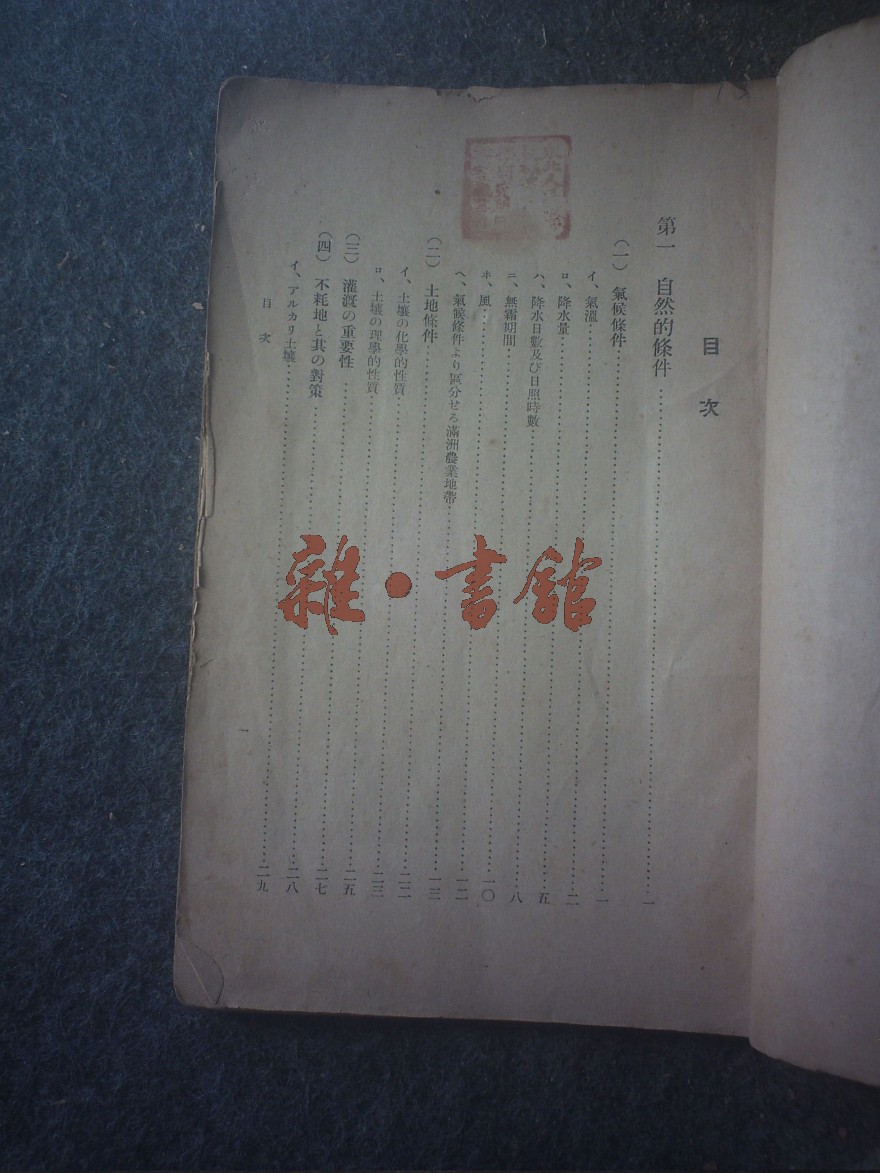 目次
第一 自然的條件……一
(一) 氣候條件……一
イ、氣溫……二
ロ、降水量……五
ハ、降水日數及び日照時數……八
ニ、無霜期間……一〇
ホ、風……一二
ヘ、氣候條件より區分せる滿洲農業地帶……一三
(二) 土地條件……二二
イ、土壤の化學的性質……二三
ロ、土壤の理學的性質……二五
(三) 灌漑の重要性……二七
(四) 不耗地と其の對策……二八
イ、アルカリ土壤……二九
目次
一
雜·書館